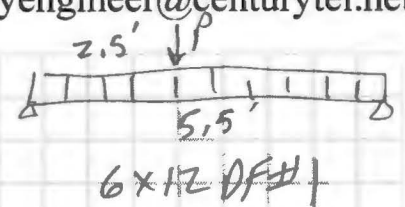 yengineer@centurytel.net
P
2.5'
5.5'
6x12 DF#1